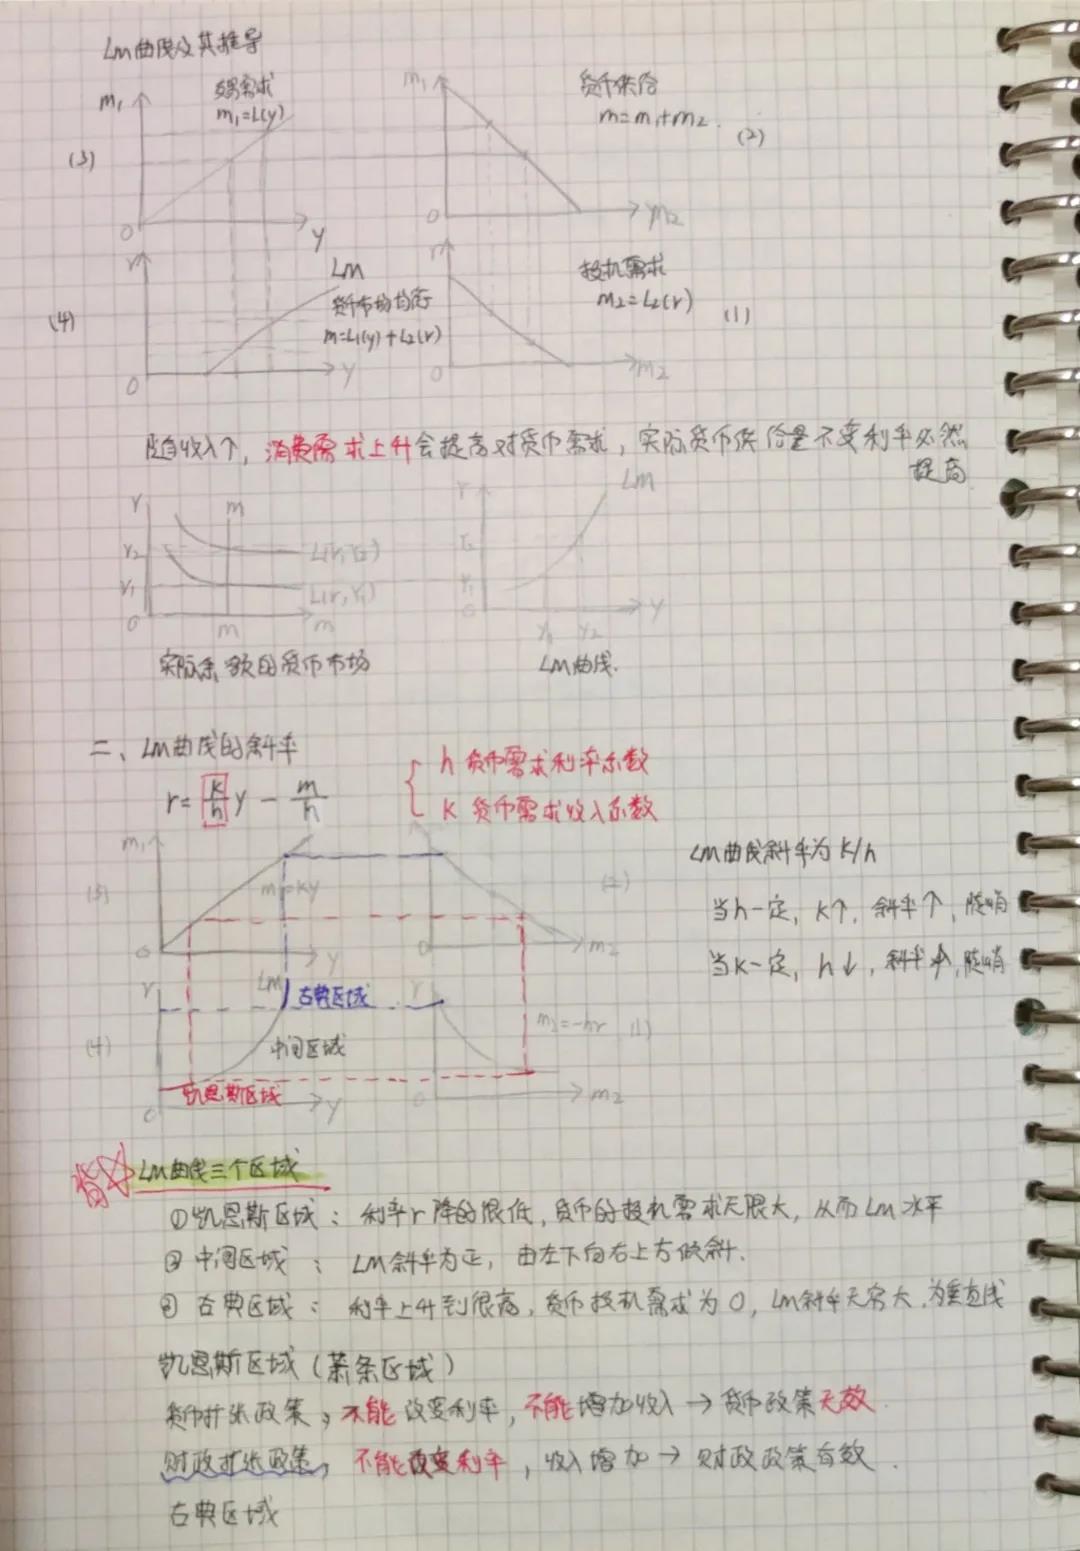 LM曲线及其推导
m₁ 交易需求 m₁ 货币供给
m₁=L(y) m=m₁+m₂
(3) (2)
0 y 0 m₂
r LM r 投机需求
货币市场均衡 m₂=L₂(r)
(4) m=L₁(y)+L₂(r) (1)
0 y 0 m₂
随着收入↑，消费需求上升会提高对货币需求，实际货币供给量不变利率必然
提高
r m r LM
r₂ L(r,Y₂) r₂
r₁ L(r,Y₁) r₁
0 m m 0 Y₁ Y₂ y
实际余额的货币市场 LM曲线.
二、LM曲线的斜率
r=k/h y - m/h
h 货币需求利率系数
k 货币需求收入系数
m₁
(3) m₁=ky (2)
0 y 0 m₂
LM曲线斜率为 k/h
当h一定，k↑，斜率↑，陡峭
当k一定，h↓，斜率↑，陡峭
r LM 古典区域 r
(4) 中间区域 m₂=-hr (1)
凯恩斯区域
0 y 0 m₂
背 LM曲线三个区域
①凯恩斯区域：利率r降的很低，货币的投机需求无限大，从而LM水平
② 中间区域：LM斜率为正，由左下向右上方倾斜.
③ 古典区域：利率上升到很高，货币投机需求为0，LM斜率无穷大，为垂直线
凯恩斯区域（萧条区域）
货币扩张政策，不能改变利率，不能增加收入→货币政策无效.
财政扩张政策，不能改变利率，收入增加→财政政策有效.
古典区域